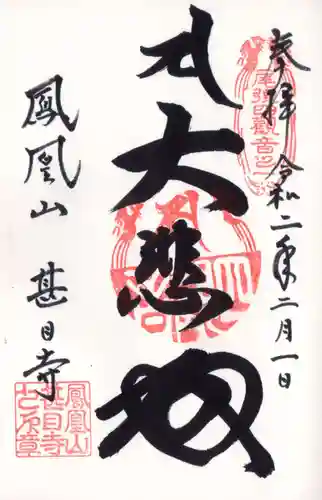 奉拝 令和二年二月一日
大悲殿
鳳凰山 甚目寺
尾張四観音之一
鳳凰山
甚目寺